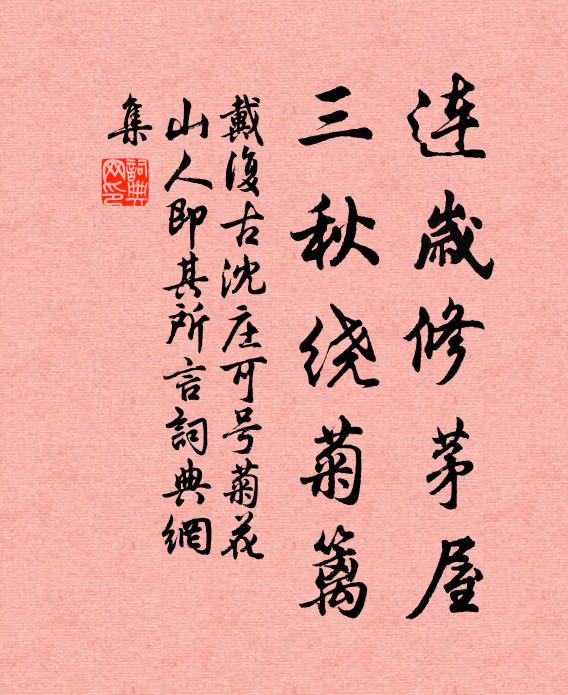 连岁修茅屋
三秋绕菊篱
戴復古沈庄可号菊花
山人即其所言詞典網
集
詞典
网印